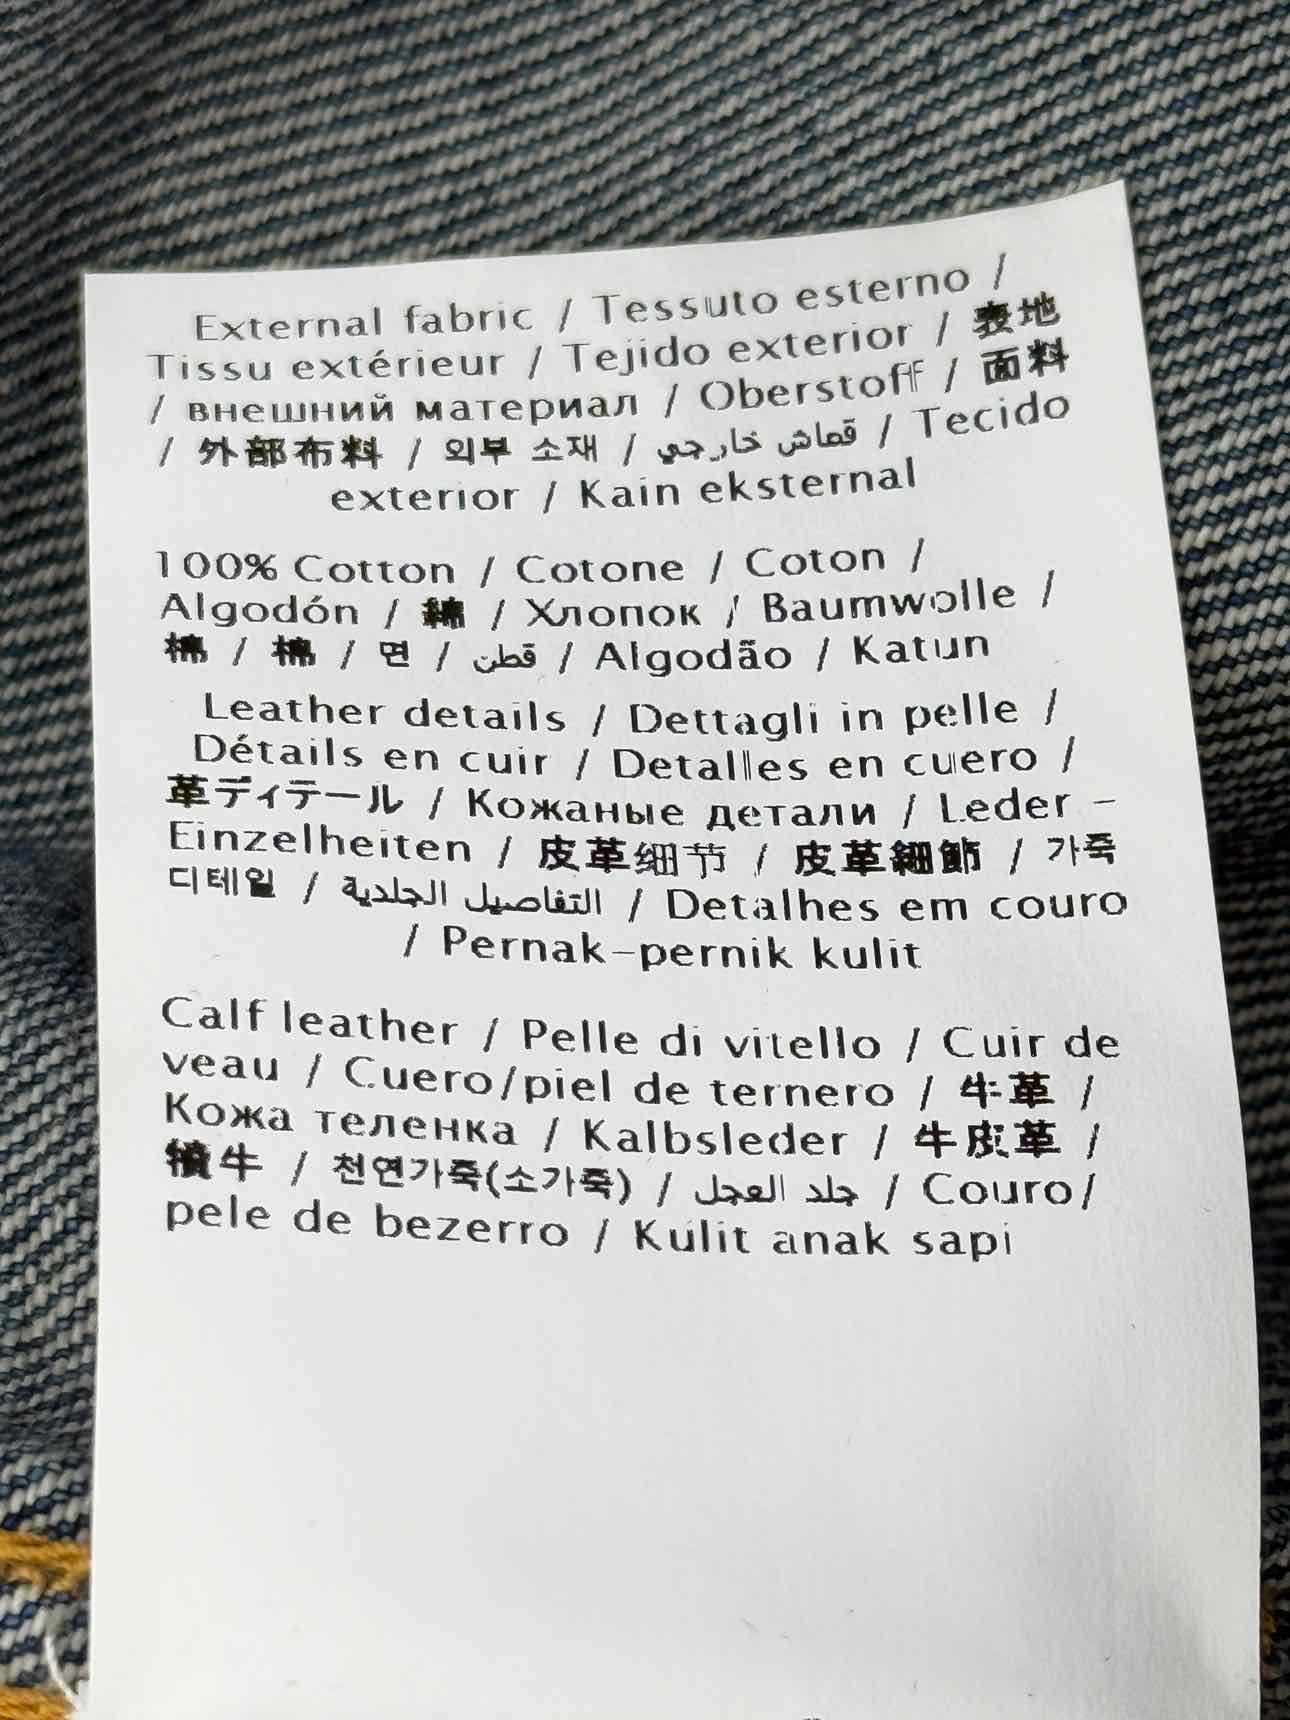 External fabric / Tessuto esterno /
Tissu extérieur / Tejido exterior / 表地
/ внешний материал / Oberstoff / 面料
/ 外部布料 / 외부 소재 / قماش خارجي / Tecido
exterior / Kain eksternal
100% Cotton / Cotone / Coton /
Algodón / 綿 / Хлопок / Baumwolle /
棉 / 棉 / 면 / قطن / Algodão / Katun
Leather details / Dettagli in pelle /
Détails en cuir / Detalles en cuero /
革ディテール / Кожаные детали / Leder -
Einzelheiten / 皮革细节 / 皮革細節 / 가죽
디테일 / التفاصيل الجلدية / Detalhes em couro
/ Pernak-pernik kulit
Calf leather / Pelle di vitello / Cuir de
veau / Cuero/piel de ternero / 牛革 /
Кожа теленка / Kalbsleder / 牛皮革 /
犢牛 / 천연가죽(소가죽) / جلد العجل / Couro/
pele de bezerro / Kulit anak sapi